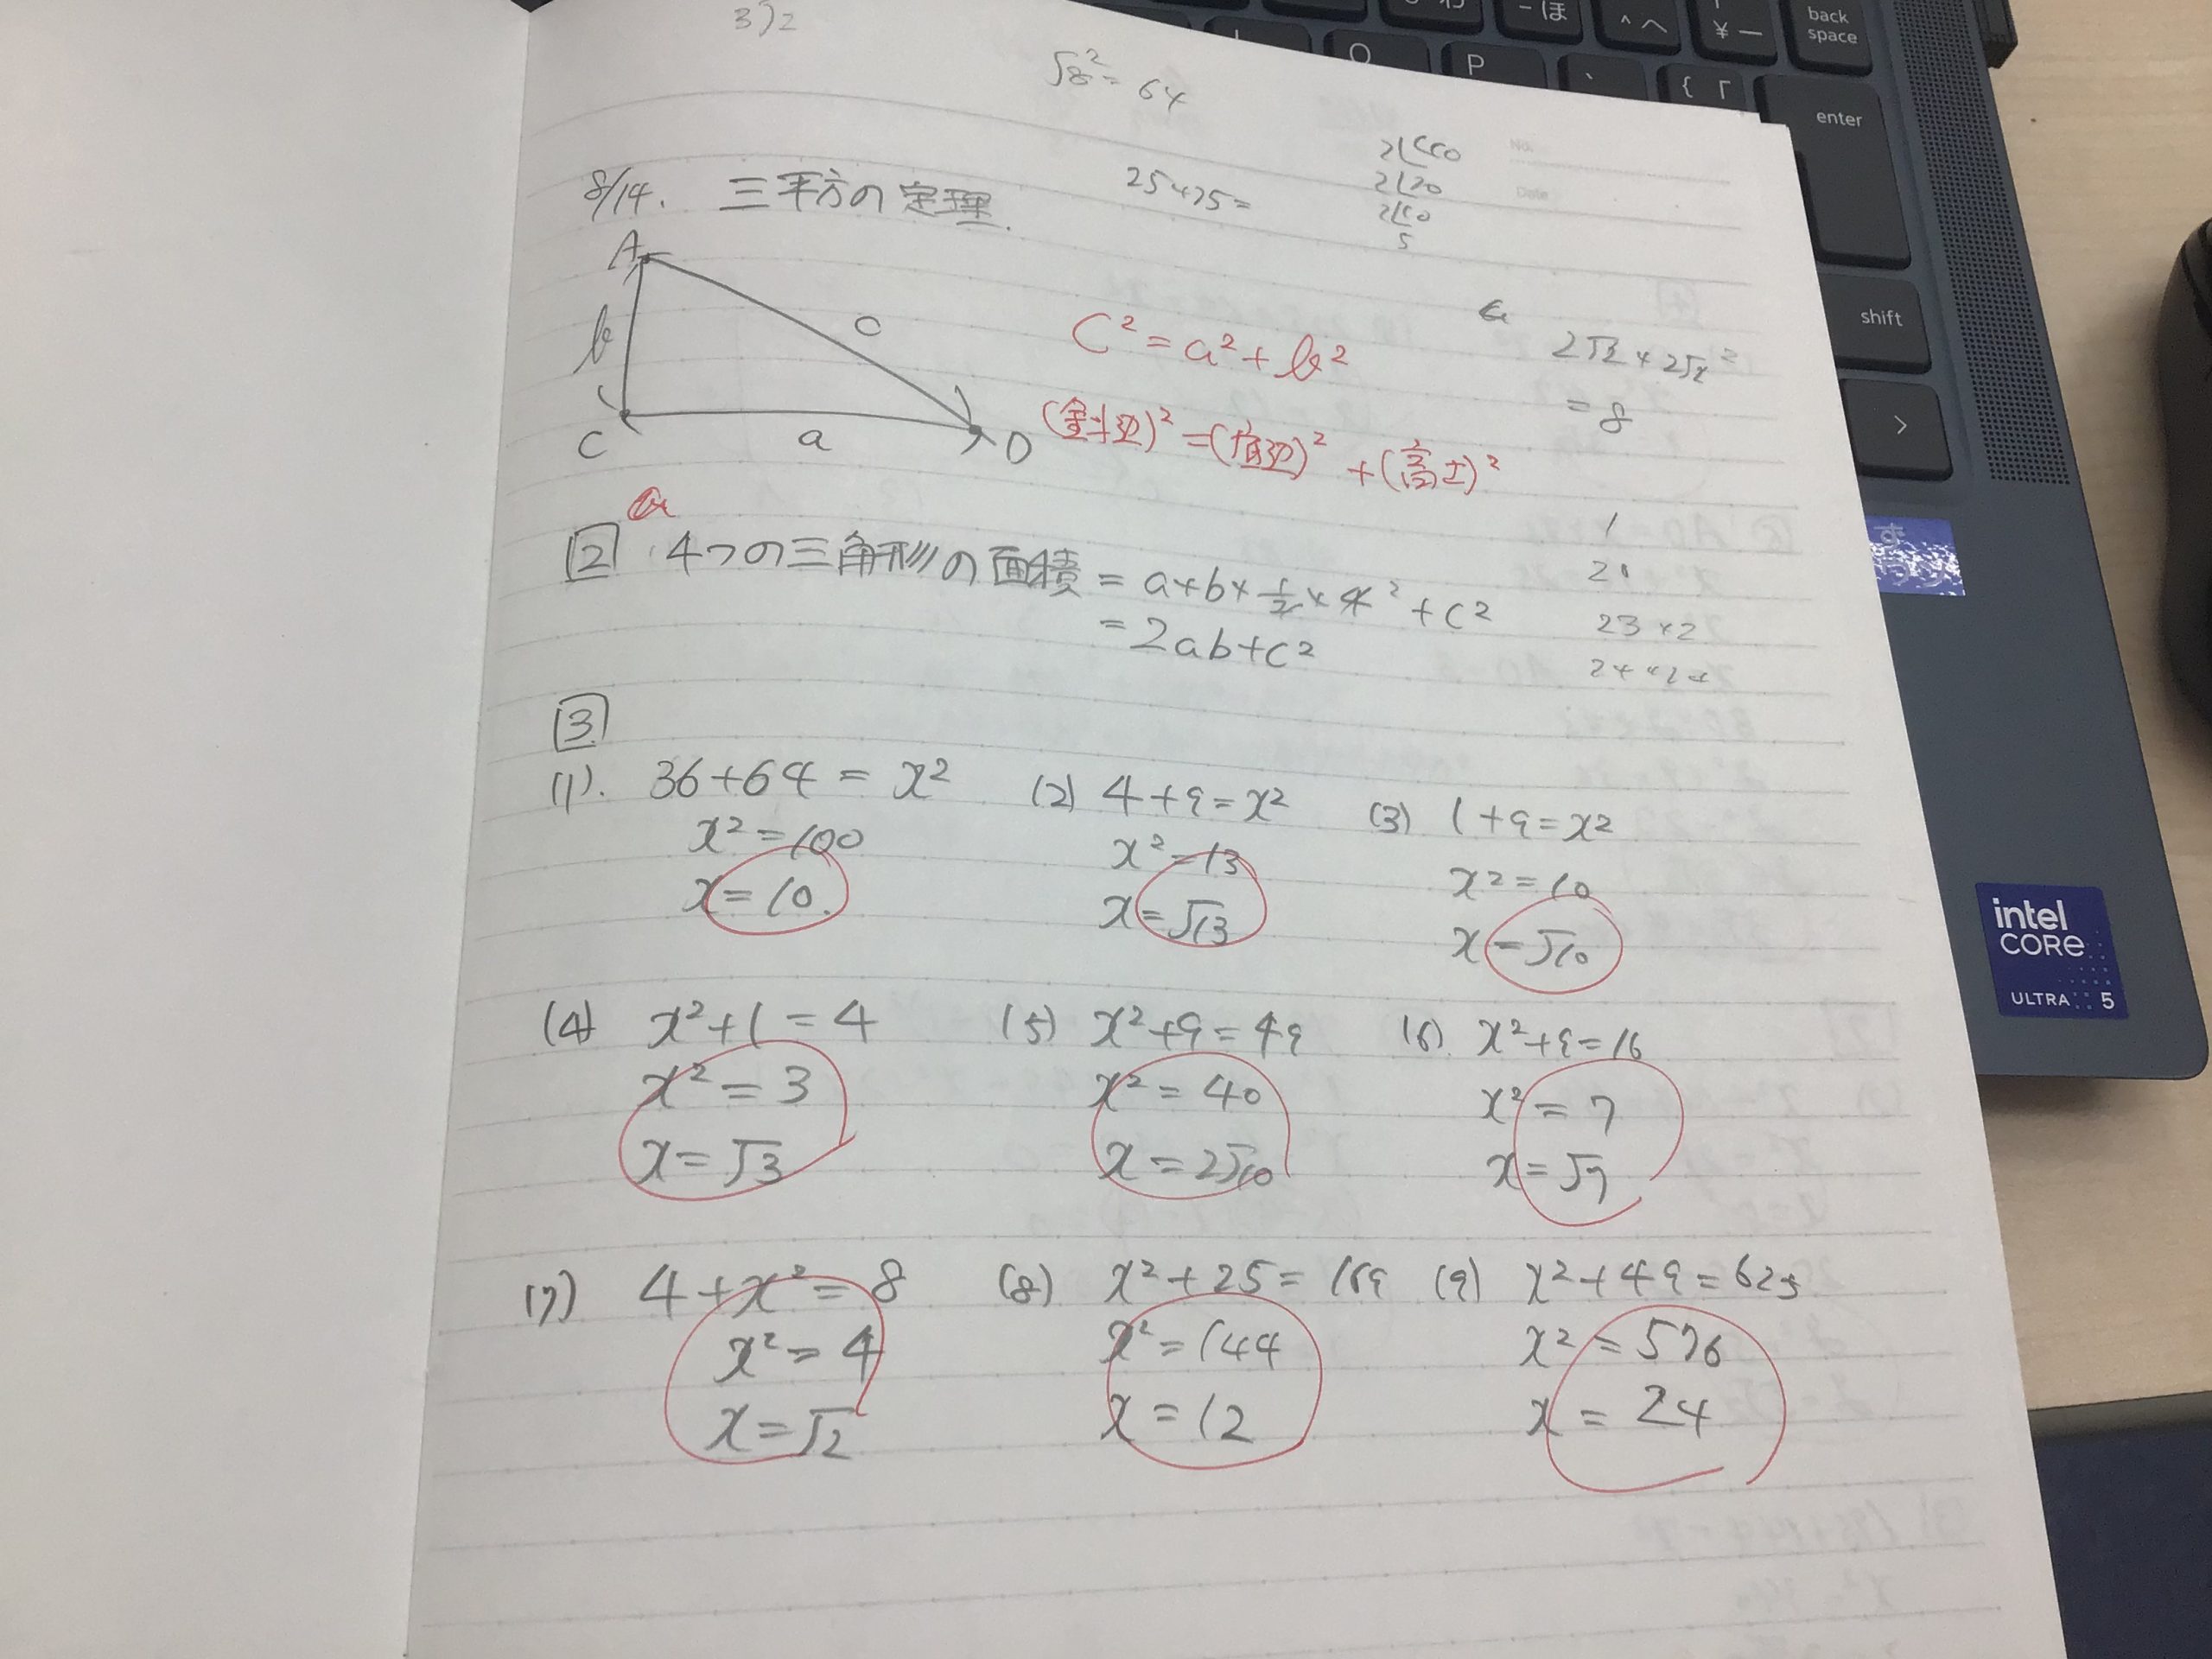 3)2
√8²=64
8/14. 三平方の定理.
25+25=
A
b
c
C
a
D
C²=a²+b²
(斜辺)²=(底辺)²+(高さ)²
2√2×2√2
=8
2 4つの三角形の面積=a×b×1/2×4²+c²
=2ab+c²
1
23×2
3
(1). 36+64=x²
x²=100
x=10.
(2) 4+9=x²
x²=13
x=√13
(3) 1+9=x²
x²=10
x=√10
(4) x²+1=4
x²=3
x=√3
(5) x²+9=49
x²=40
x=2√10
(6) x²+9=16
x²=7
x=√7
(7) 4+x²=8
x²=4
x=√2
(8) x²+25=169
x²=144
x=12
(9) x²+49=625
x²=576
x=24
No.
Date
back
space
-ほ
^へ
¥ー
O
P
{「
enter
shift
>
intel
CORE
ULTRA 5